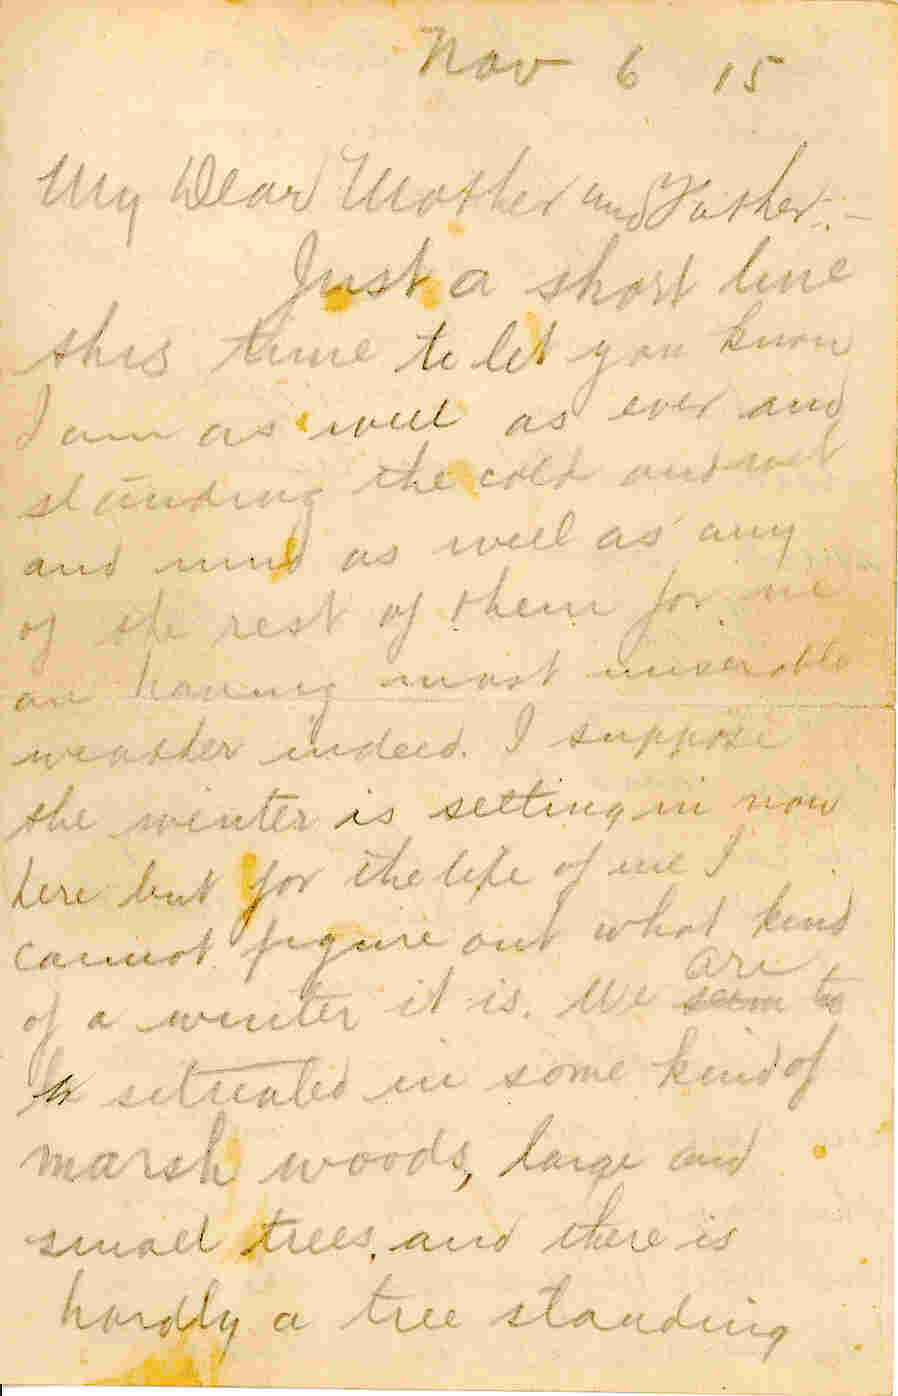 Nov 6 15
My Dear Mother and Father:-
Just a short line
this time to let you know
I am as well as ever and
standing the cold and wet
and mud as well as any
of the rest of them for we
are having most miserable
weather indeed. I suppose
the winter is setting in now
here but for the life of me I
cannot figure out what kind
of a winter it is. We are seem to
be situated in some kind of
marsh woods, large and
small trees, and there is
hardly a tree standing